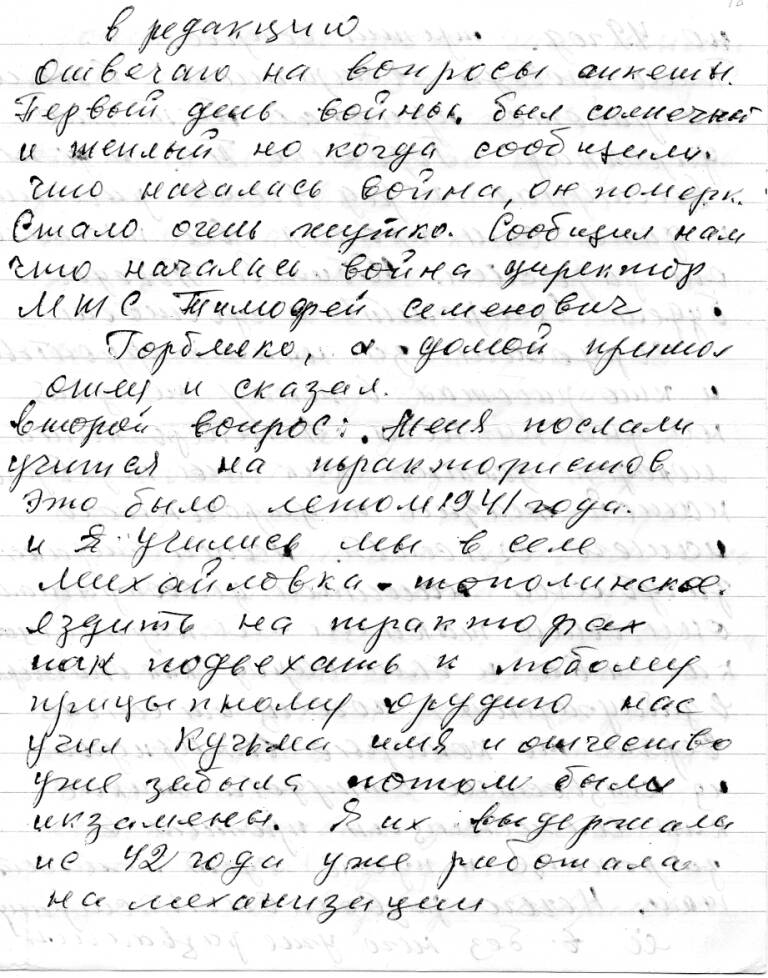 в редакцию
отвечаю на вопросы анкеты.
Первый день войны был солнечный
и теплый но когда сообщили
что началась война, он померк.
Стало очень жутко. Сообщил нам
что началась война директор
МТС Тимофей Семенович
Горбленко, а домой пришол
отец и сказал.
второй вопрос: Меня послали
учится на трактористов
это было летом 1941 года.
и я учились мы в селе
Михайловка - тополинское.
яздить на тракторах
как подьехать к любому
прицыпному орудию нас
учил Кучьма имя и отчество
уже забыла потом были
икзамены. Я их выдержала
и с 42 года уже работала
на механизации